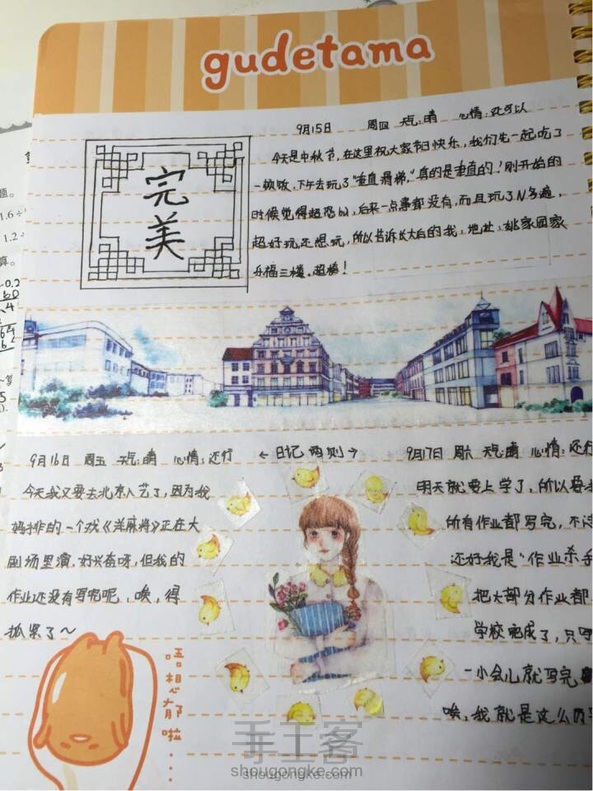 gudetama
9月15日 周四 天气:晴 心情:还可以
今天是中秋节,在这里祝大家节日快乐,我们先一起吃了
一顿饭,下午去玩了"垂直滑梯,"真的是垂直的!刚开始的
时候觉得超恐怖,后来一点事都没有,而且玩了N多遍,
超好玩还想玩,所以告诉长大后的我:地址:姚家园家
乐福三楼,超棒!
完
美
9月16日 周五 天气:晴 心情:还行
← 日记两则 →
9月17日 周六 天气:晴 心情:还行
今天我又要去北京人艺了,因为我
妈排的一个戏《洋麻将》正在大
剧场里演,好兴奋呀,但我的
作业还没有写完呢,唉,得
抓累了~
明天就要上学了,所以要
所有作业都写完,不过
还好我是"作业杀手
把大部分作业都
学校完成了,只
一小会儿就写完
唉,我就是这么厉
唔
想
郁
啦
...
手工客
shougongke.com